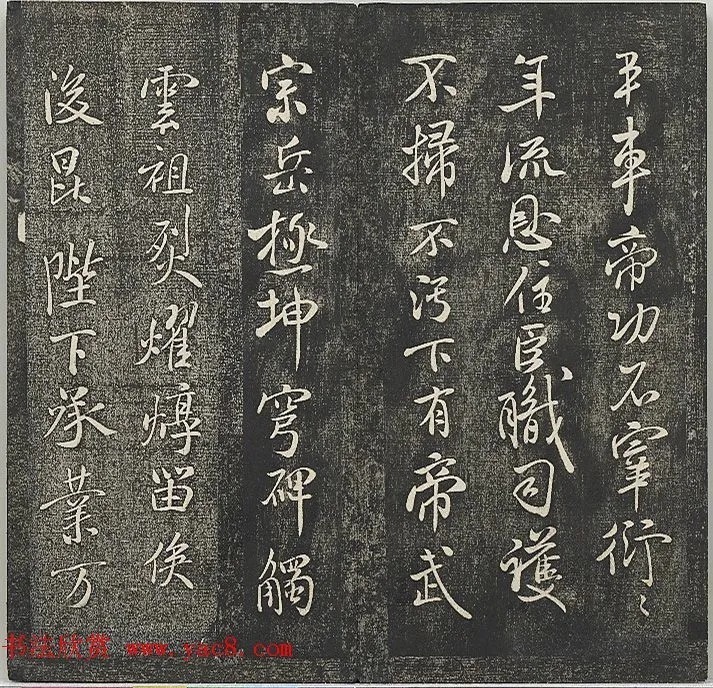 車帝功石窣衍〻
年流恩住臣職司護
不掃不污下有帝武
宗岳極坤穹碑觸
雲祖烈燿焞留俟
後昆陛下承業万
书法欣赏 www.yac8.com